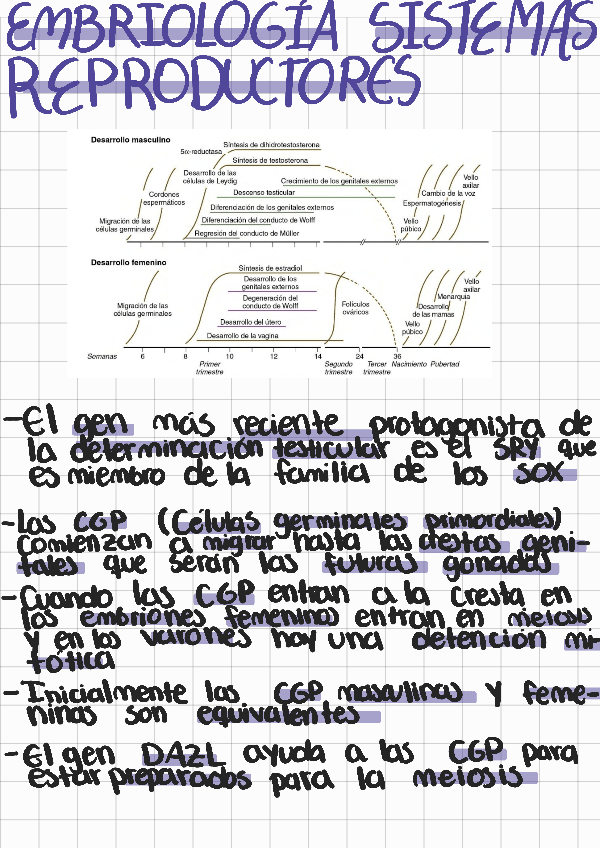 EMBRIOLOGÍA SISTEMAS
REPRODUCTORES
Desarrollo masculino
Síntesis de dihidrotestosterona
5α-reductasa
Síntesis de testosterona
Desarrollo de las
células de Leydig
Crecimiento de los genitales externos
Vello
axilar
Descenso testicular
Cambio de la voz
Cordones
espermáticos
Espermatogénesis
Diferenciación de los genitales externos
Migración de las
células germinales
Diferenciación del conducto de Wolff
Vello
púbico
Regresión del conducto de Müller
Desarrollo femenino
Síntesis de estradiol
Desarrollo de los
genitales externos
Vello
axilar
Degeneración del
conducto de Wolff
Menarquia
Migración de las
células germinales
Folículos
ováricos
Desarrollo
de las mamas
Desarrollo del útero
Vello
púbico
Desarrollo de la vagina
Semanas 6 8 10 12 14 24 36
Primer
trimestre
Segundo
trimestre
Tercer
trimestre
Nacimiento Pubertad
-El gen más reciente protagonista de
la determinación testicular es el SRY que
es miembro de la familia de los SOX
-Las CGP (Células germinales primordiales)
comienzan a migrar hasta las crestas geni-
tales que serán las futuras gonadas
-Cuando las CGP entran a la cresta en
los embriones femeninos entran en meiosis
y en los varones hay una detención mi-
tótica
-Inicialmente las CGP masculinas y feme-
ninas son equivalentes
-El gen DAZL ayuda a las CGP para
estar preparados para la meiosis